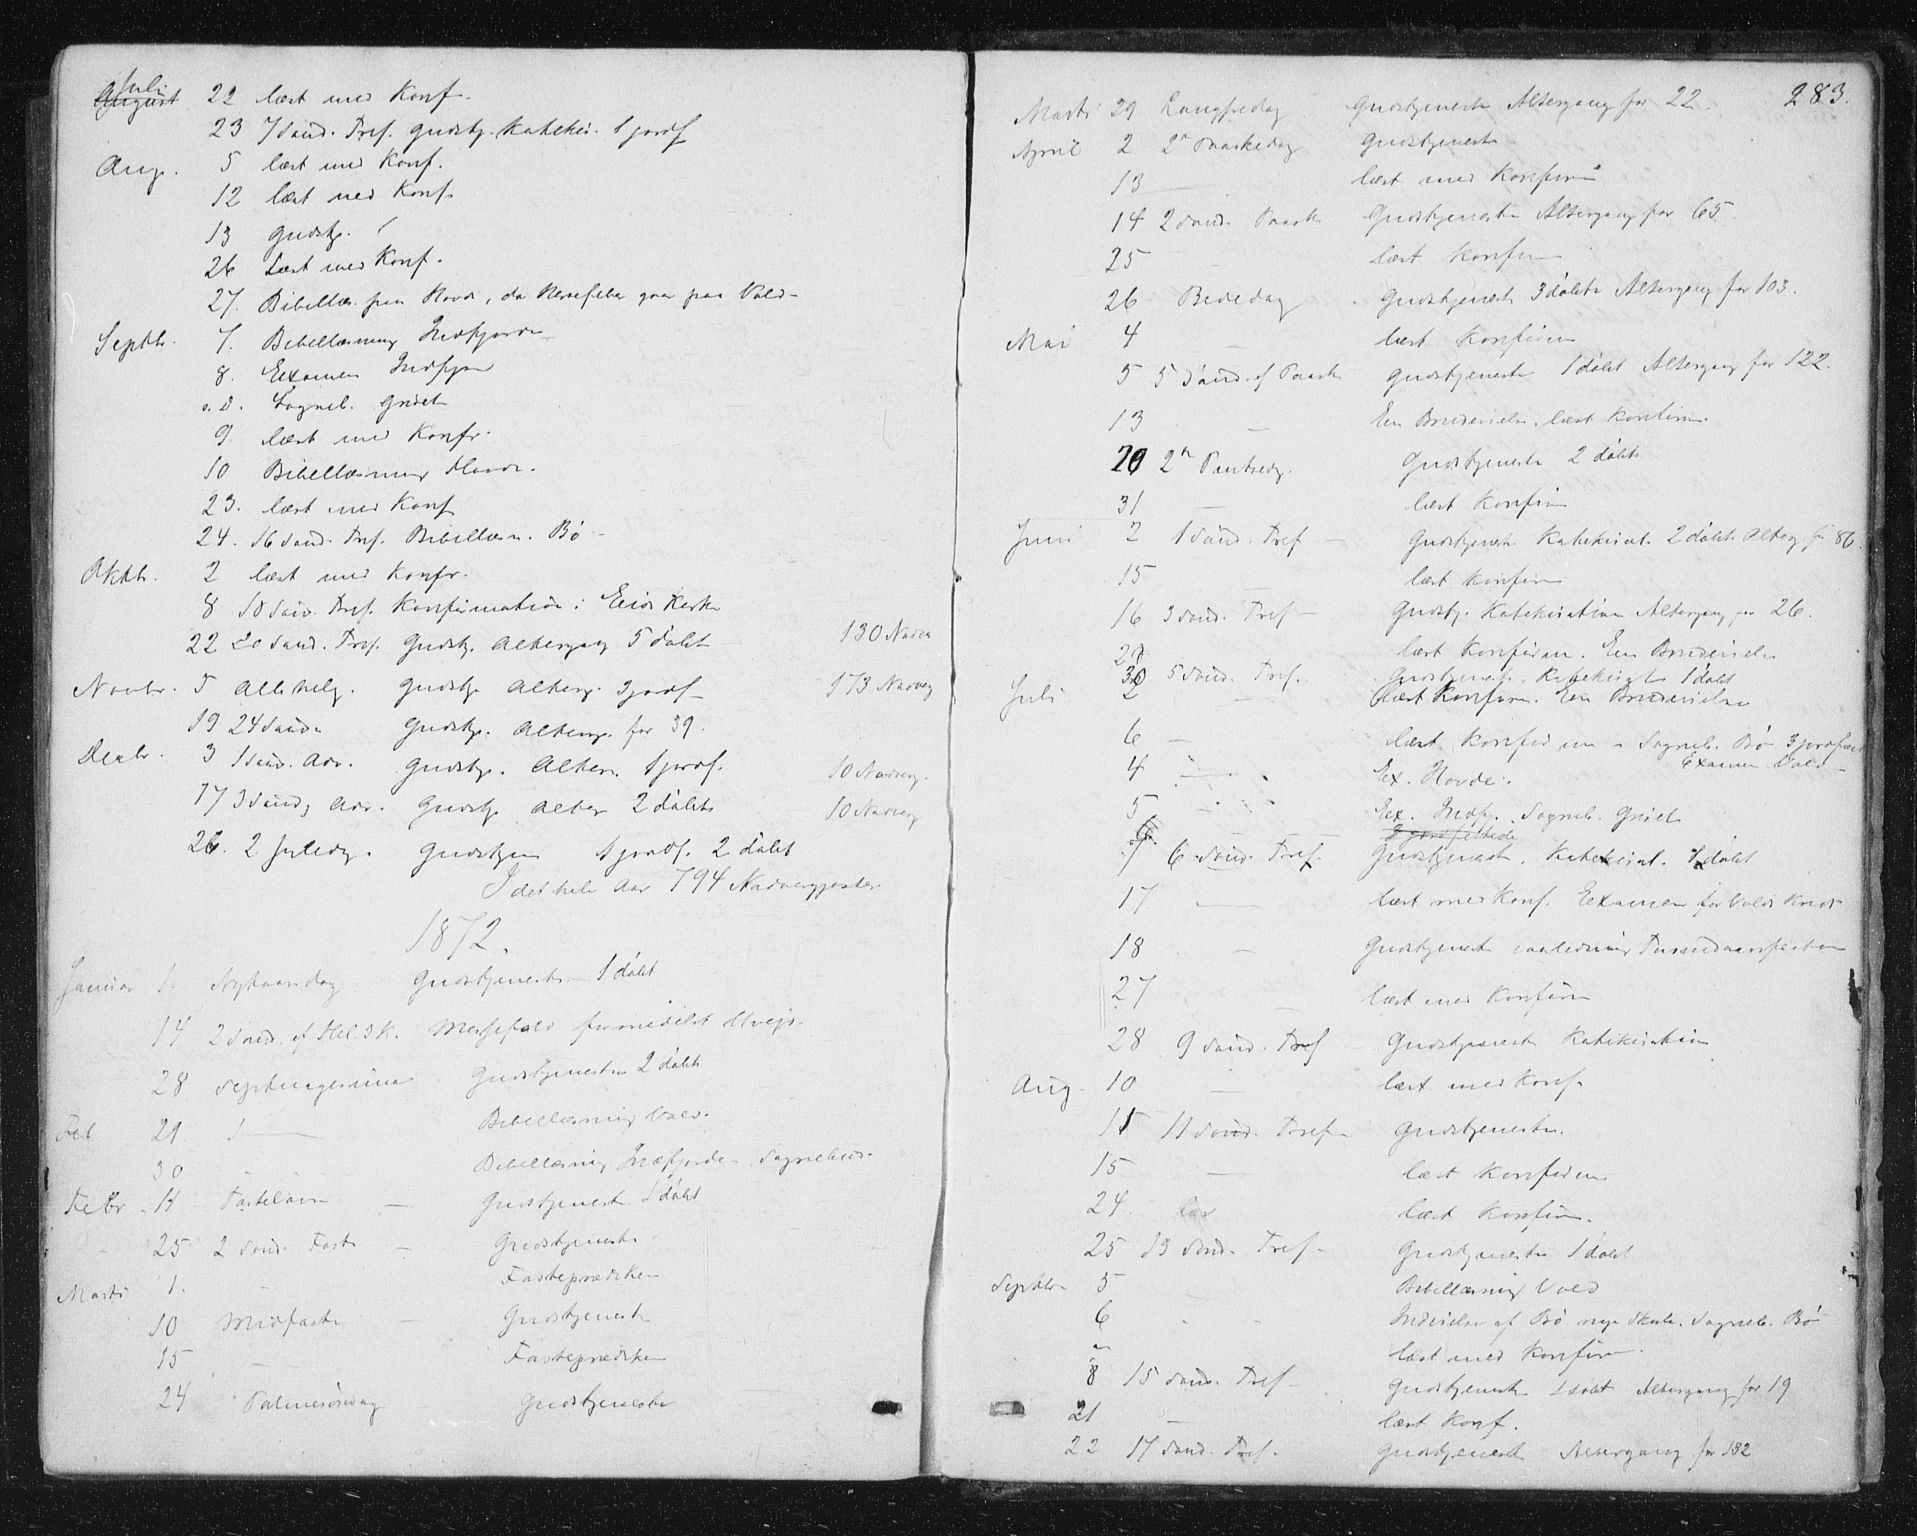 Juli
August 22 læst med Konf.
23 7 Sønd. Tref. Gudstj. Katekis. 1 jordf
Aug. 5 læst med Konf.
12 læst med Konf
13 Gudstj.
26 Læst med Konf.
27. Bibellæs. paa Hovde, da
Septbr. 7. Bibellæsning Indfjorden
8. Examen Indfjor
s. D. Sogneb. Griset
9. læst med Konfr.
10 Bibellæsning Hovde.
23. læst med Konf
24. 16 Sønd. Tref. Bibellæsn. Bø
Oktbr. 2 læst med Konfr.
8 18 Sønd. Tref. Konfirmation i Eids Kirke
22 20 Sønd. Tref. Gudstj. Altergang 5 døbt 130 Nadv
Novbr. 5 Allehelg. Gudstj. Alterg. 3 jordf 173 Nadverg
19 24 Sønd Gudstj. Alterg. for 39.
Decbr. 3 1 Sønd. Adv. Gudstj. Alter. 1 jordf. 10 Nadverg.
17 3 Sønd. Adv. Gudstj Alter 2 døbte 10 Nadverg
26. 2 Juledg. Gudstjen 1 jordf. 2 døbt
I det hele Aar 794 Nadvergjester
1872.
Januar 1. Nytaarsdag Gudstjeneste 1 døbt
14 2 Sønd. af Hel. 3 K. Messefald formedelst Uveir.
28 Septuagesima Gudstjeneste 2 døbte
Feb 29 Bibellæsning Vold.
30 Bibellæsning Indfjorden Sognebud.
Febr. 11 Fastelavn Gudstjeneste 1 døbt
25 2 Sønd. Faste Gudstjeneste
Marts 1. Fasteprædiken
10 Midfaste Gudstjeneste
15 Fasteprædiken
24 Palmesøndag Gudstjeneste
283.
Marts 29 Langfredag Gudstjeneste Altergang for 22.
April 2 2n Paaskedag Gudstjeneste
13 læst med Konfirm
14 2 Sønd. Paaske Gudstjeneste Altergang for 65
25 læst Konfirm
26 Bededag Gudstjeneste 3 døbte Altergang for 103.
Mai 4 læst Konfirm
5 5 Sønd. ef Paaske Gudstjeneste 1 døbt Altergang for 122.
13 En Brudevielse, læst Konfirm.
20 2n Pintsedg. Gudstjeneste 2 døbte
31 læst Konfirm
Juni 2 1 Sønd. Tref Gudstjeneste Katekisat. 2 døbte Alterg. for 86.
15 læst Konfirm
16 3 Sønd. Tref Gudstj. Katekisation Altergang for 26.
27 læst Konfirm. En Brudevielse
30 5 Sønd. Tref. Gudstjeneste. Katekisat 1 døbt
Juli 2 læst Konfirm. En Brudevielse
6 læst Konfirm Sogneb. Bø 3 jordfæst
Examen Vold
4 Ex. Hovde.
5 Ex. Indfj. Sogneb. Griset
3 jordfæstede
7 6 Sønd. Tref. Gudstjeneste. Katekisat. 1 døbt
17 læst med Konf. Examen for Volds Kreds
18 Gudstjeneste i anledning Tusendaarsfesten
27 læst med Konfirm
28 9 Sønd. Tref Gudstjeneste Katekisation
Aug. 10 læst med Konf.
11 11 Sønd. Tref Gudstjeneste.
15 læst Konfirm
24. læst Konfirm.
25 13 Sønd. Tref. Gudstjeneste 1 døbt
Septbr 5 Bibellæsning Vold
6 Indvielse af Bø nye Skole. Sogneb. Bø
læst med Konfirm.
8 15 Sønd. Tref Gudstjeneste 1 døbt Altergang for 19
21 læst Konf.
22 17 Sønd. Tref. Gudstjeneste Altergang for 132